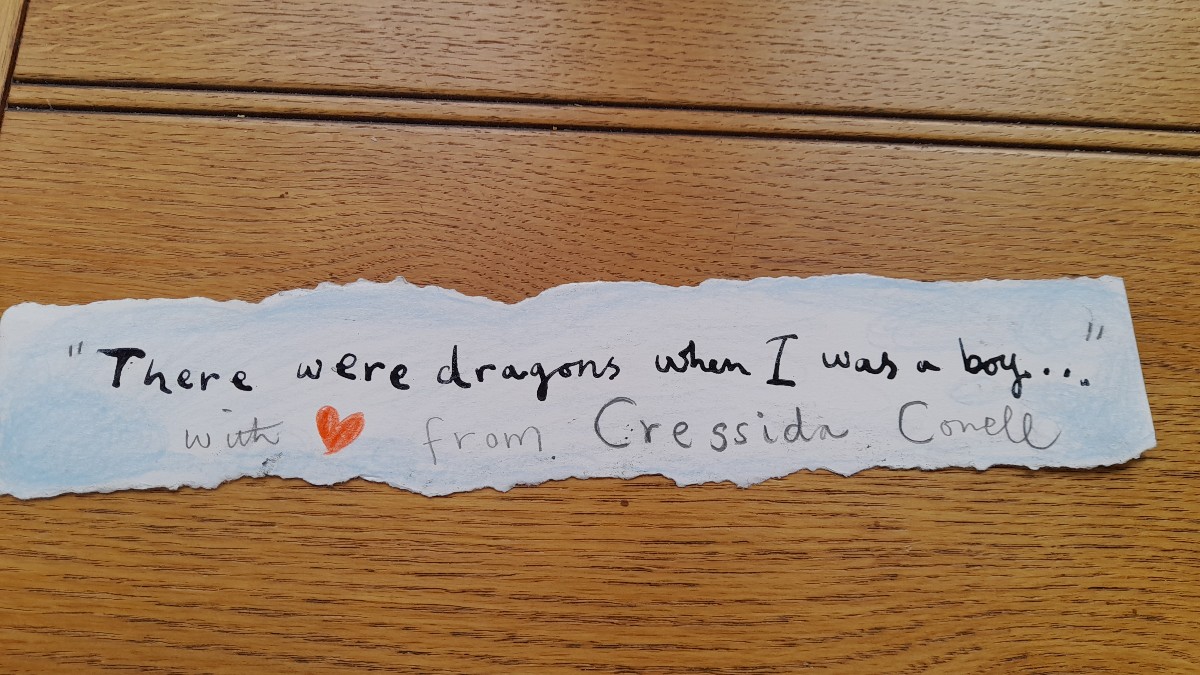 "There were dragons when I was a boy..."
with ❤ from Cressida Cowell